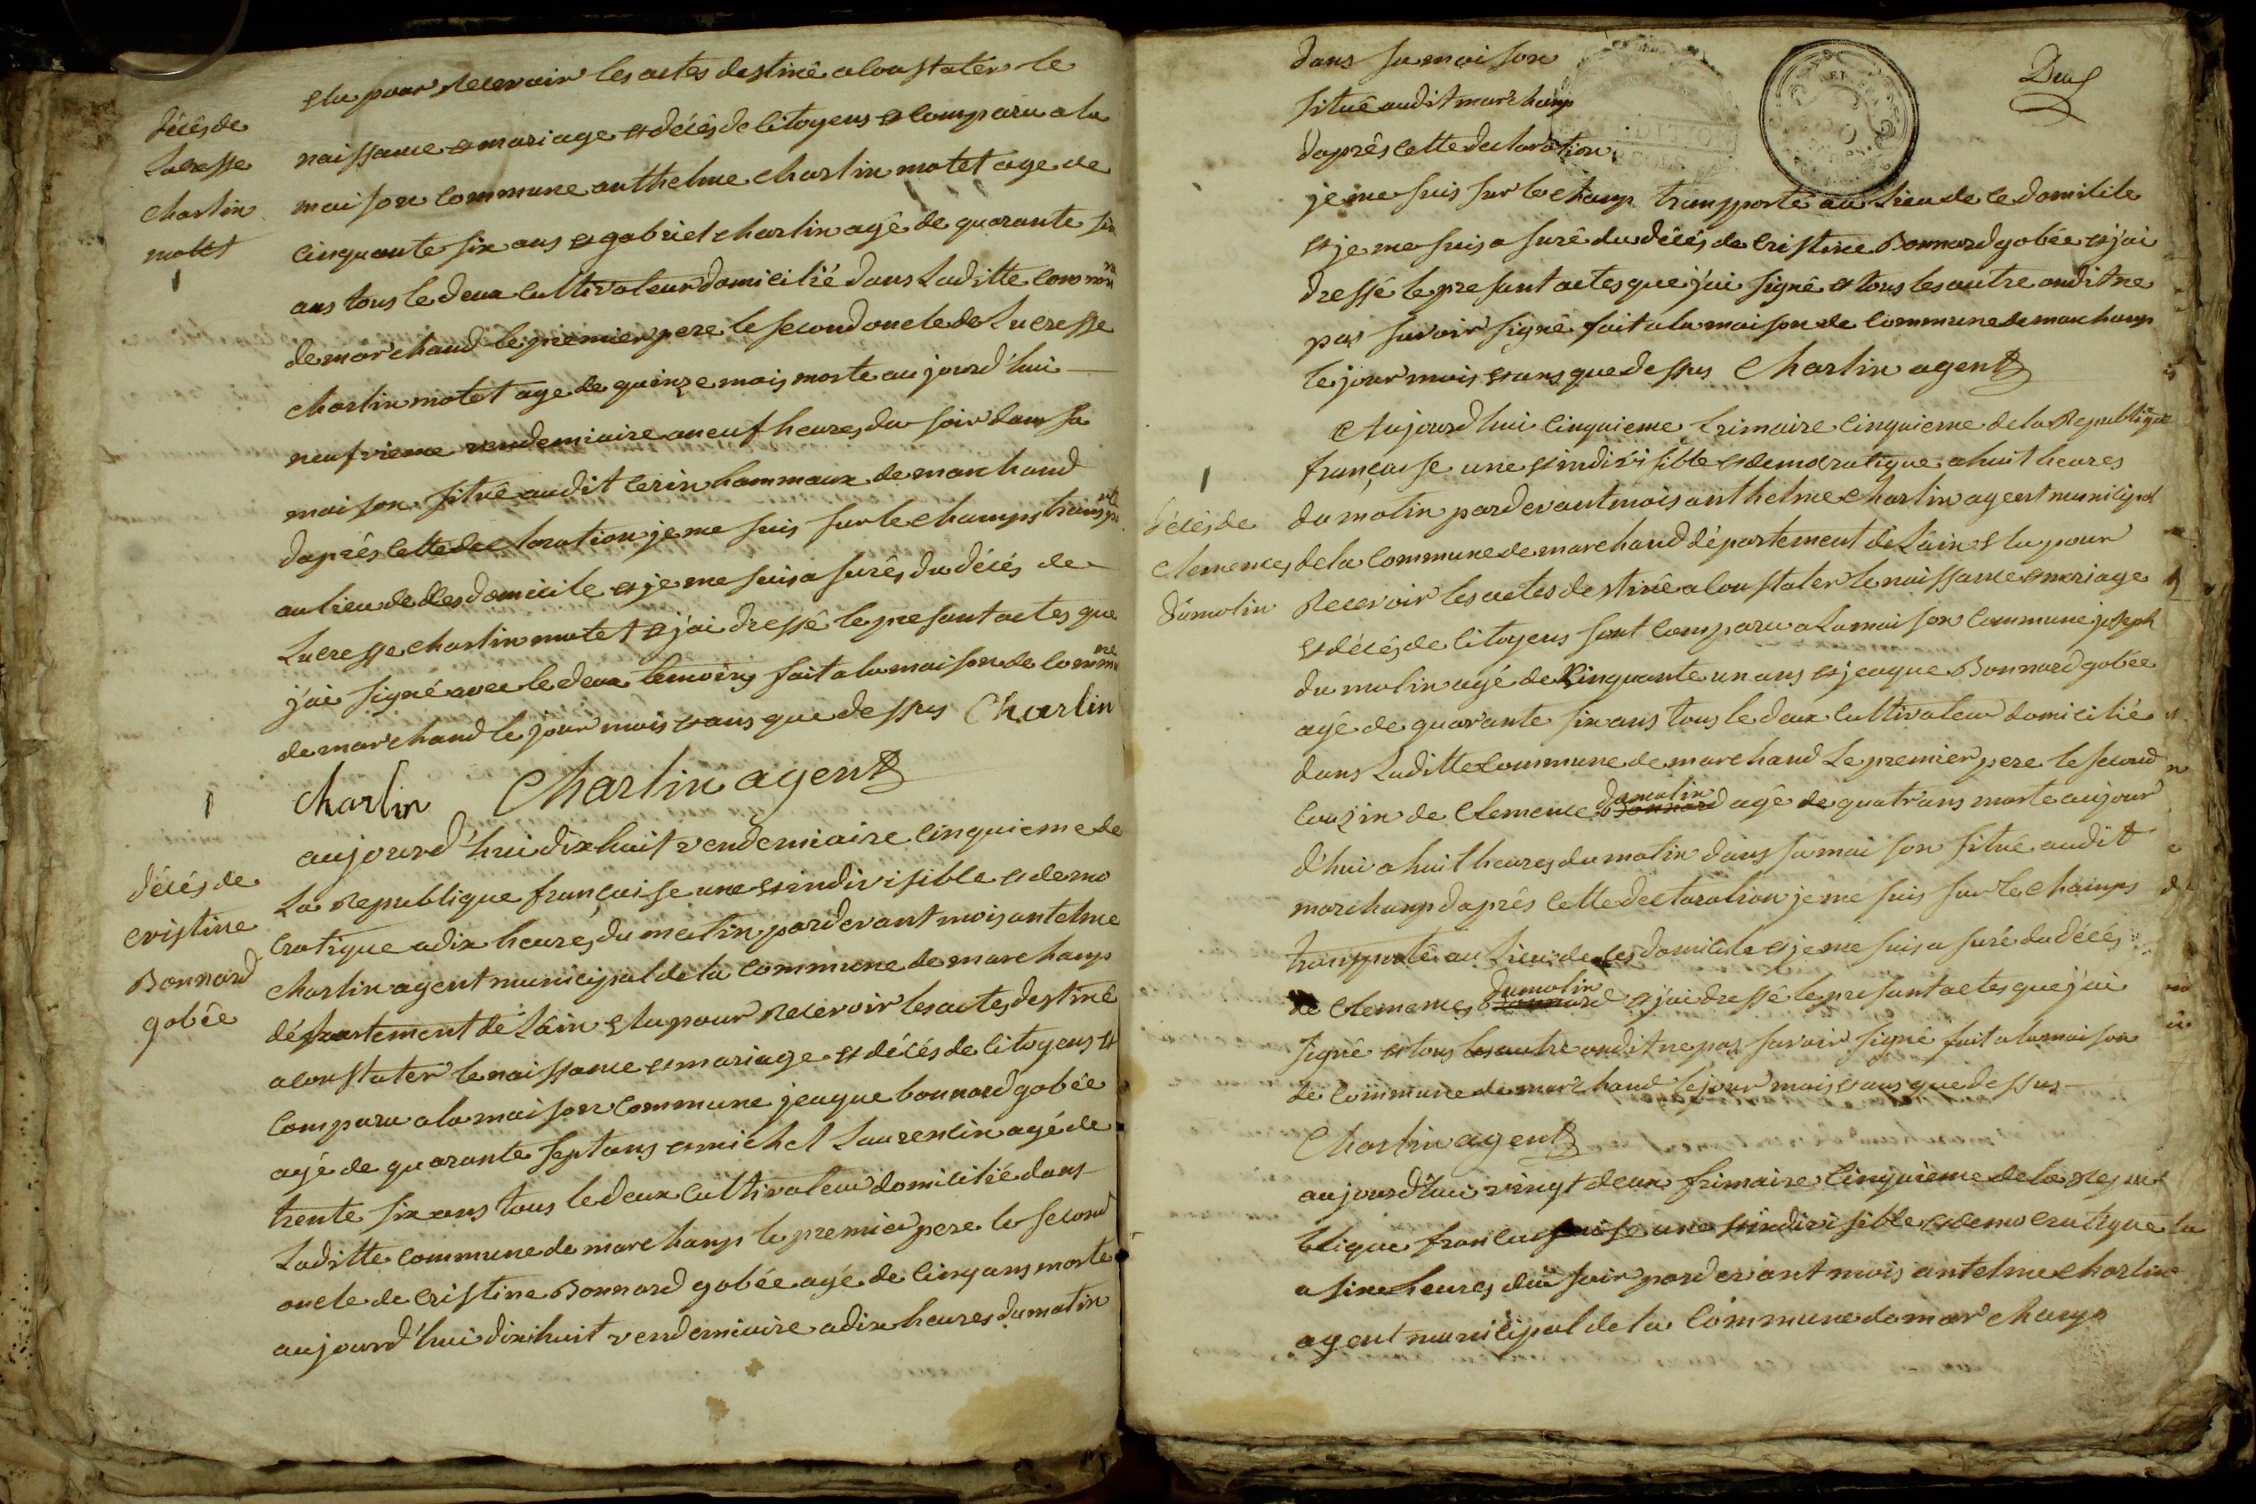 elu pour recevoir les actes destiné a constatér le
décés de
Lucresse
charlin
motet
naissance et mariage et décés de citoyens et comparu a la
maison commune anthelme charlin motet age de
cinquante six ans et gabriel charlin agé de quarante six
ans tous le deux cultivateur domicilié dans Laditte commune
de marchand le premier pere le second oncle de Lucresse
charlin motet age de quinze mois morte aujourd'hui
neufvieme vendemiaire a neuf heures du soir dans sa
maison situé audit cerin hammaux de marchand
daprés cette declaration je me suis sur le champs transporté
au lieu de ces domicile et je me suis a surés du décés de
Lucresse charlin motet et j'ai dressé le presant actes que
j'ai signé avec le deux temoins fait a la maison de commune
de marchand le jour mois et ans que dessus Charlin
charlin Charlin agent
décés de
cristine
Bonnard
gobée
aujourd'hui dixhuit vendemiaire cinquieme de
La Republique françaisse une et indivisible et demo
cratique a dix heures du matin pardevant mois antelme
charlin agent municipal de la commune de marchamp
département de Lâin elu pour recevoir les actes destiné
a constater le naissance et mariage et décés de citoyens et
comparu a la maison commune jeaque bonnard gobée
agé de quarante sept ans et michel Laurencin agé de
trente six ans tous le deux cultivateur domicilié dans
Laditte commune de marchamp le premier pere le second
oncle de cristine Bonnard gobée agé de cinq ans morte
aujourd'hui dix huit vendemiaire a dix heures du matin
Deux
dans sa maison
situé audit marchamp
daprés cette declaration
je me suis sur le champ transporté au Lieu de ce domicile
et je me suis a suré du décés de cristine Bonnard gobée et j'ai
dressé le presant actes que j'ai signé et tous les autre ondit ne
pas savoir signé fait a la maison de commune de marchamp
le jour mois et ans que dessus Charlin agent
Aujourd'hui cinquieme frimaire cinquieme de la Republique
françaisse une et indivisible et democratique a huit heures
décés de
clemences
dumolin
du matin pardevant mois anthelme charlin agent municipal
de la commune de marchand département de Lâin elu pour
Recevoir les actes destiné a constater le naissance et mariage
et décés de citoyens sont comparu a La maison commune joseph
du molin agé de cinquante un ans et jeaque Bonnard gobée
agé de quarante six ans tous le deux cultivateur domicilié
dans Laditte commune de marchand Le premier pere le second
couzin de clemence dumolin agé de quatr'ans morte aujour
d'hui a huit heures du matin dans sa maison situé audit
marchamp daprés cette declaration je me suis sur le champs
transporté au Lieu de ces domicile et je me suis a suré du décés
de clemences dumolin et j'ai dressé le presant actes que j'ai
signé et tous les autre ondit ne pas savoir signé fait a la maison
de commune de marchand le jour mois et ans que dessus
Charlin agent
aujourd'hui vingt deux frimaire cinquieme de la Repu
blique française une et indivisible et democratique
a six heures du soir pardevant mois antelme charlin
agent municipal de la commune de marchamp